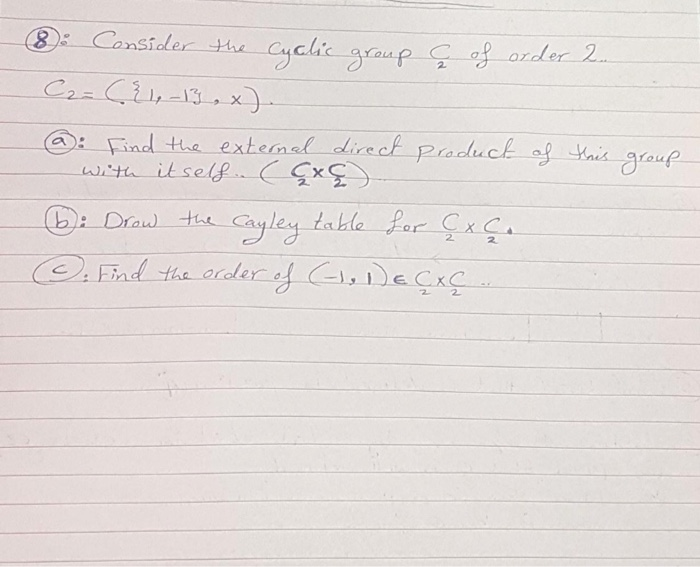 ⑧: Consider the cyclic group C₂ of order 2..
C₂ = ({1, -1}, ×).
ⓐ: Find the external direct product of this group
with itself.. (C₂×C₂)
ⓑ: Draw the Cayley table for C₂ × C₂.
ⓒ: Find the order of (-1, 1) ∈ C₂×C₂ ..